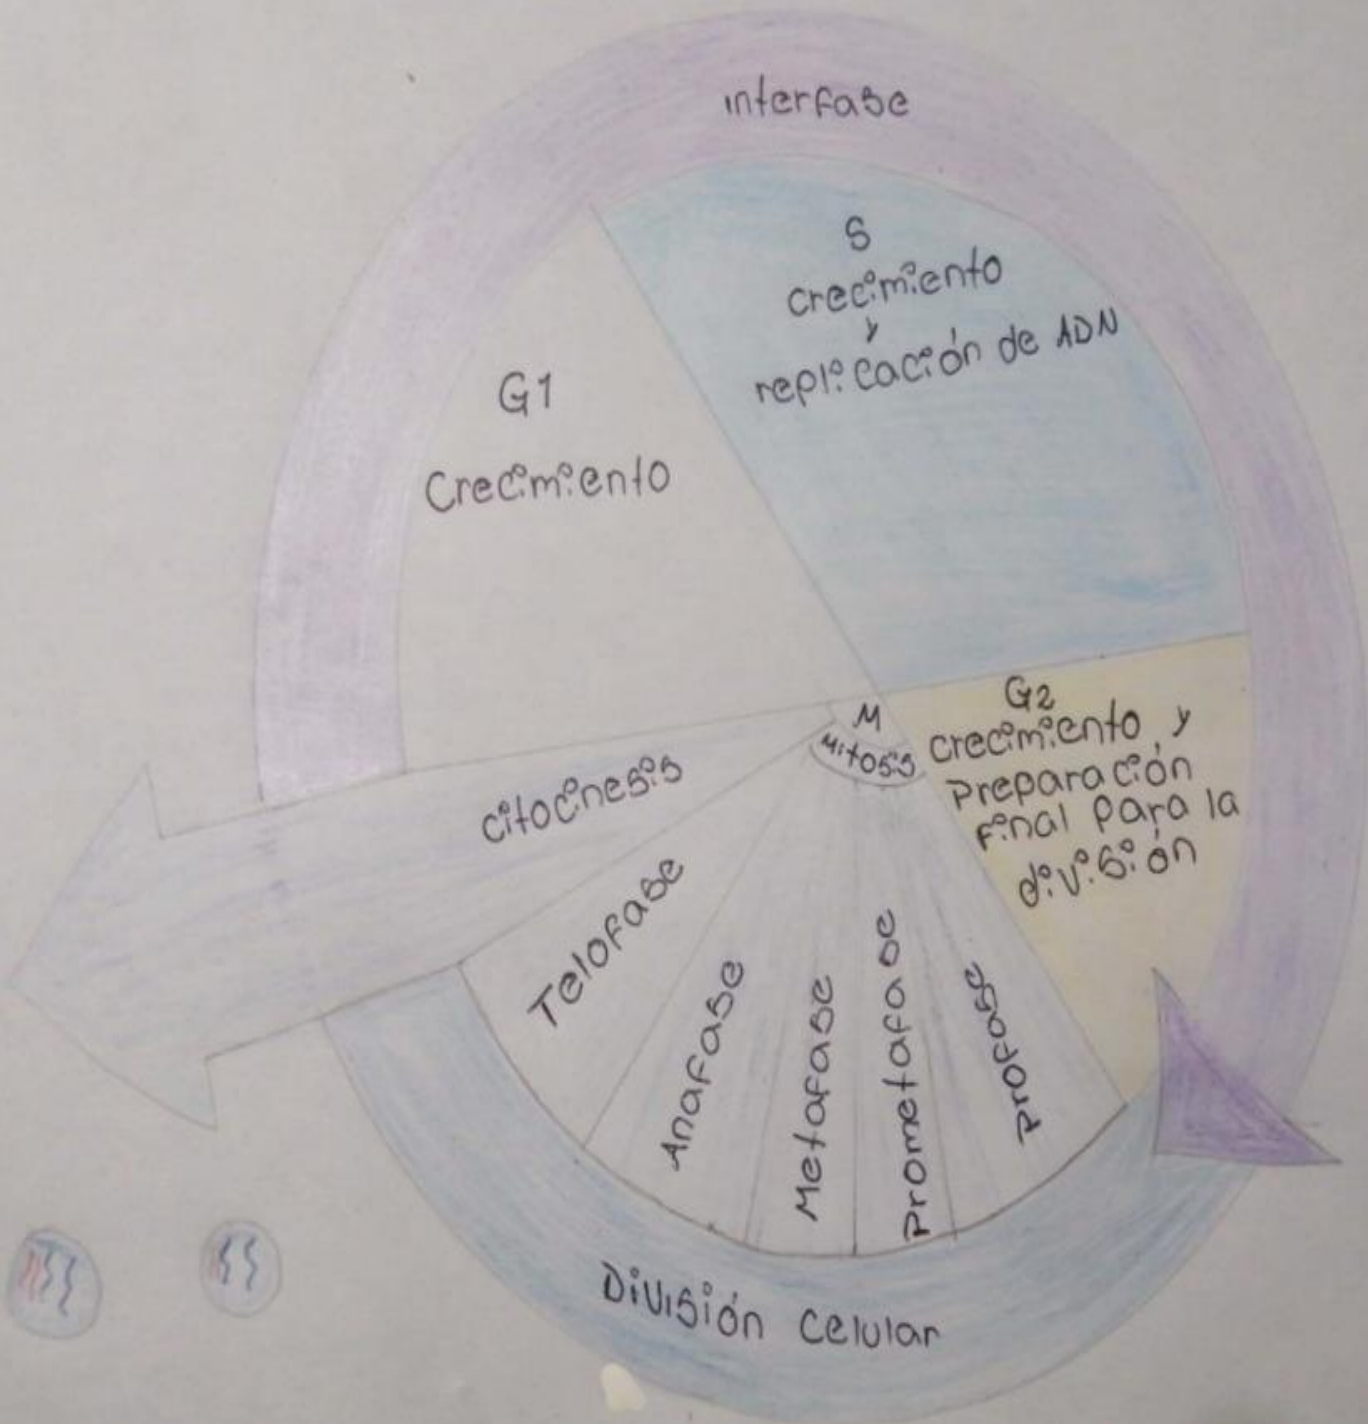 interfase
S
crecimiento
y
replicación de ADN
G1
Crecimiento
G2
crecimiento y
preparación
final para la
división
M
Mitosis
citocinesis
Telofase
Anafase
Metafase
Prometafase
Profase
División celular